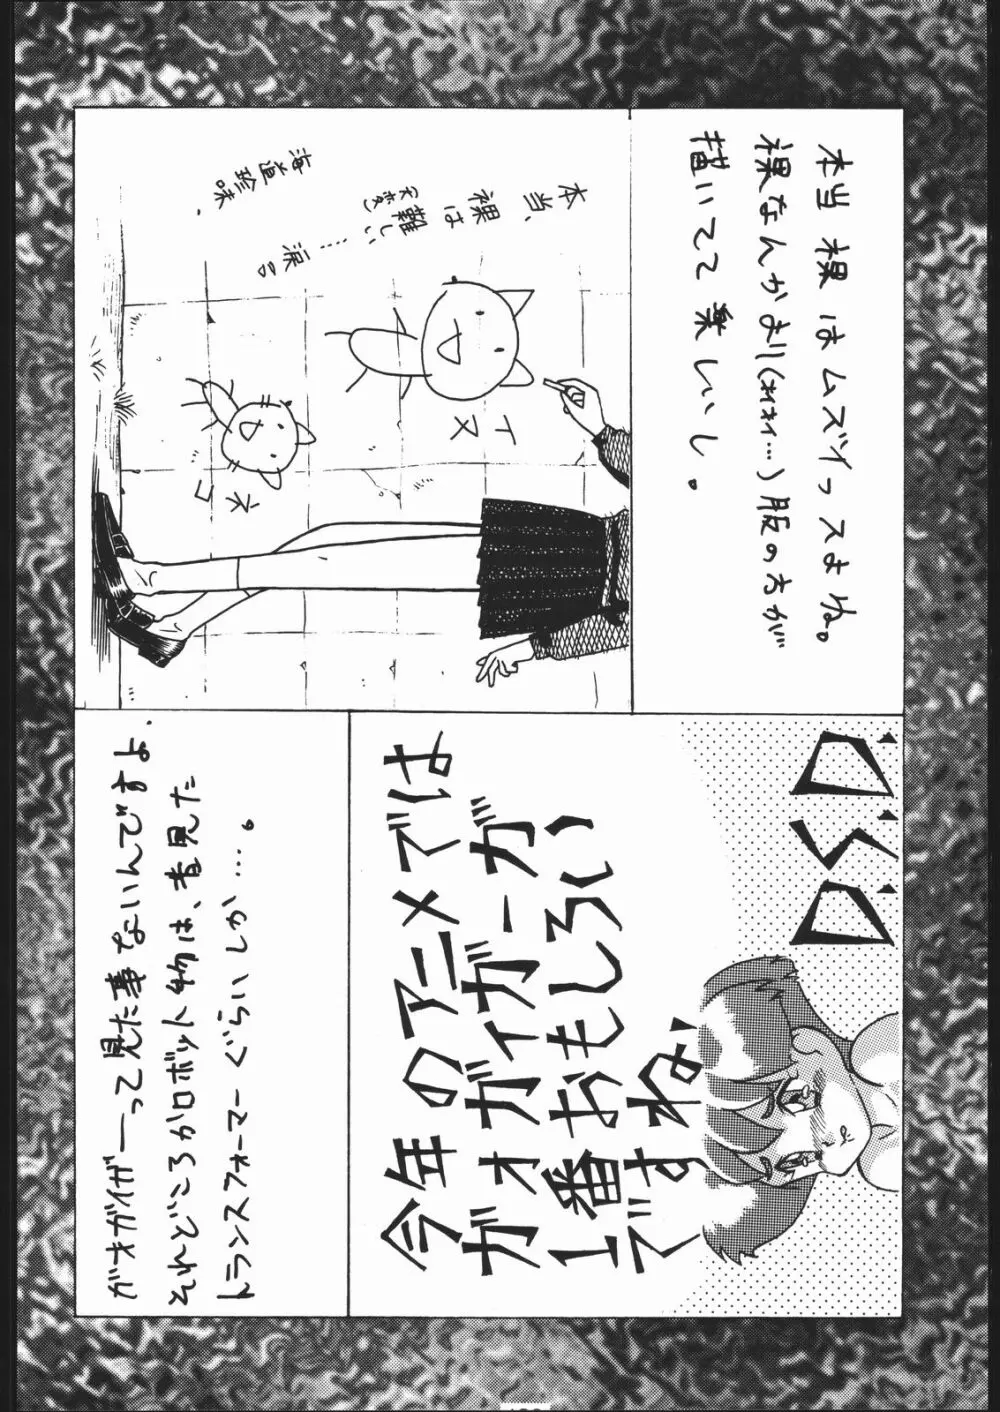 本当裸はムズイっスよね。
裸なんかより(オイオイ…)服の方が
描いてて楽しいし。
本当、
裸は
難しい……涙
(大変)
海道珍味.
イヌ
ネコ
D.S.D.
今年のアニメでは
ガオガイガーが
1番おもしろい
ですね
ガオガイガーって見た事ないんですよ.
それどころかロボット物は、昔見た
トランスフォーマーぐらいしか…。